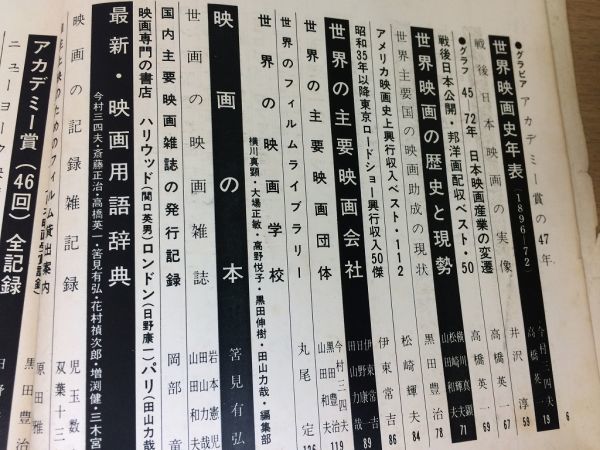 ●グラビア アカデミー賞の47年
世界映画史年表(1896―72) 今村三四夫 高橋英一 19
戦後日本映画の実像 井沢淳 59
●グラフ 45―72年 日本映画産業の変遷 高橋英一 67
戦後日本公開・邦洋画配収ベスト・50 69
世界映画の歴史と現勢 横川真顕 松崎輝夫 山田和夫 71
世界主要国の映画助成の現状 黒田豊治 78
アメリカ映画史上興行収入ベスト・112 松崎輝夫 84
昭和35年以降東京ロードショー興行収入50傑 伊東常吉 86
世界の主要映画会社 伊東常吉 日野康一 田山力哉 89
世界の主要映画団体 今村三四夫 黒田豊治 山田和夫 119
世界のフィルムライブラリー 丸尾定 126
世界の映画学校
横川真顕・大場正敏・高野悦子・黒田伸樹・田山力哉・編集部
映画の本 筈見有弘
世界の映画雑誌 岩本憲児 田山力哉 山田和夫
国内主要映画雑誌の発行記録 岡部竜
映画専門の書店 ハリウッド(間口英男)ロンドン(日野康一)パリ(田山力哉)
最新・映画用語辞典
今村三四夫・斎藤正治・高橋英一・筈見有弘・花村禎次郎・増渕健・三木宮
映画の記録雑記録 児玉数 双葉十三
フィルム貸出案内 原田雅
アカデミー賞(46回)全記録 黒田豊治
ニューヨーク映
6